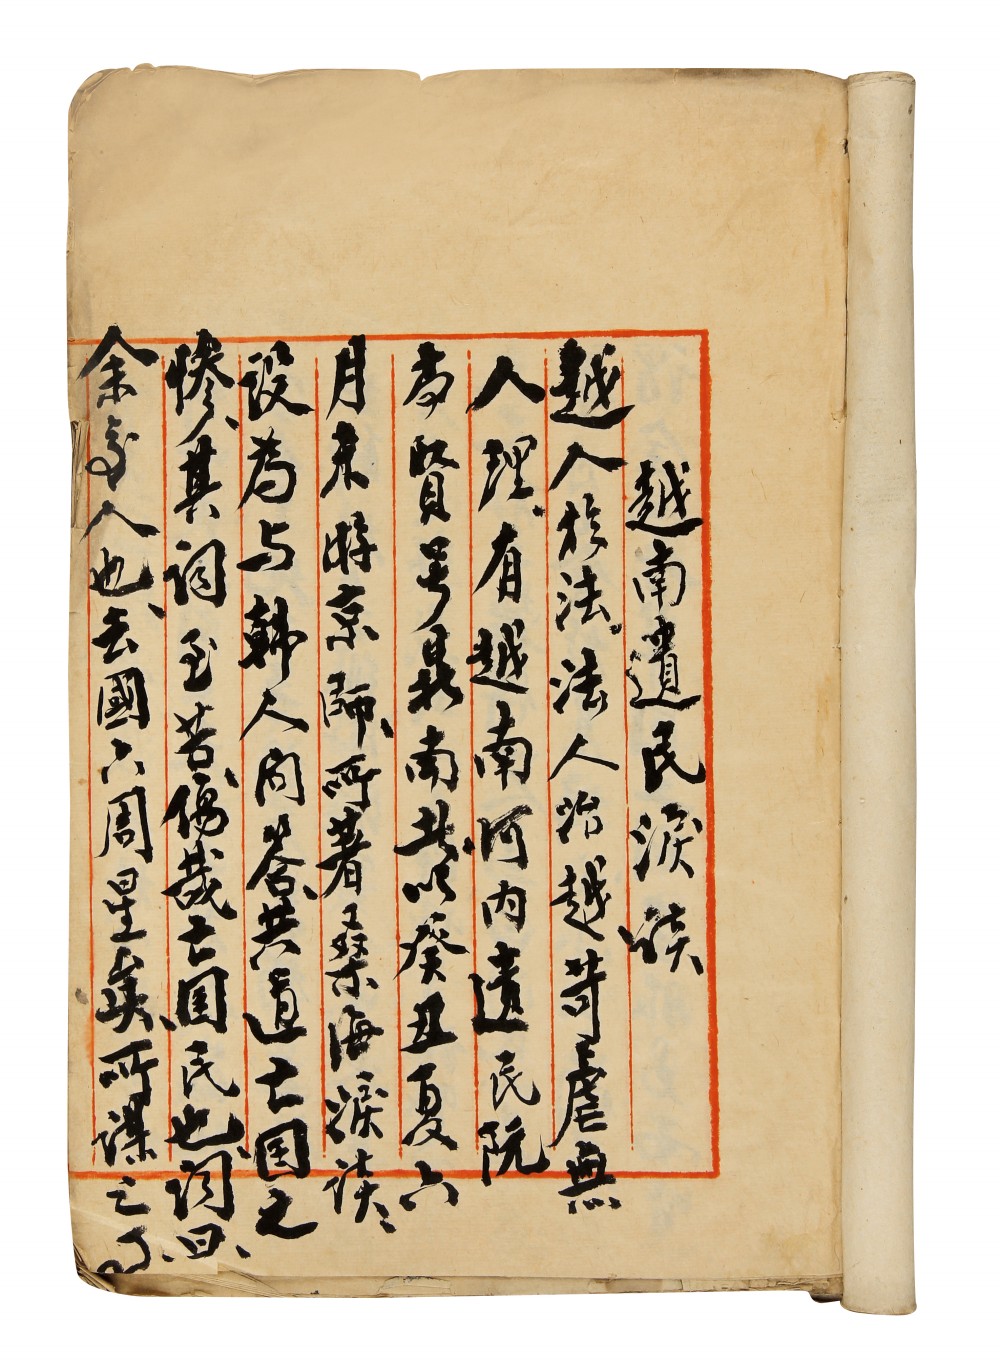 越南遺民淚談
越入於法法人治越苛虐無
人理有越南河内遺民阮
尚賢號鼎南者以癸丑夏六
月來游京師所著桑海淚談
設為与韓人问荅共道亡国之
惨其詞至苦傷哉亡国民也詞曰
余南人也去國六周星矣所謀亡